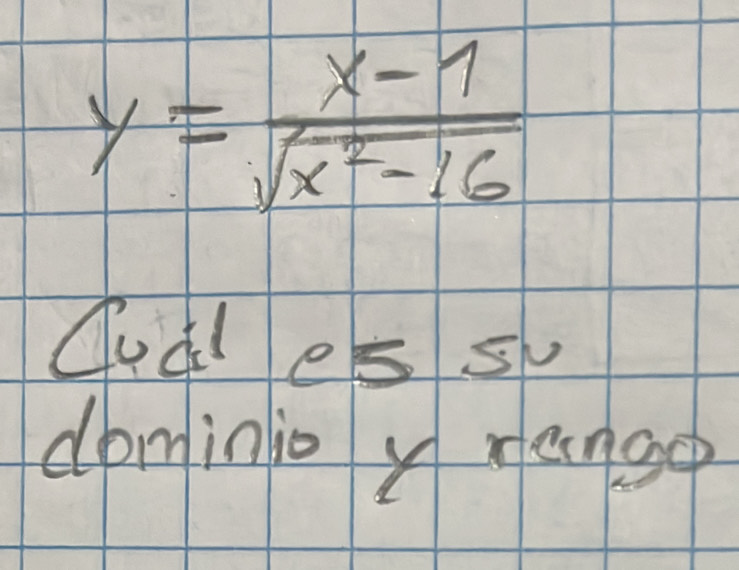 y = \frac{x-1}{\sqrt{x^2-16}}
Cuál es su
dominio y rango